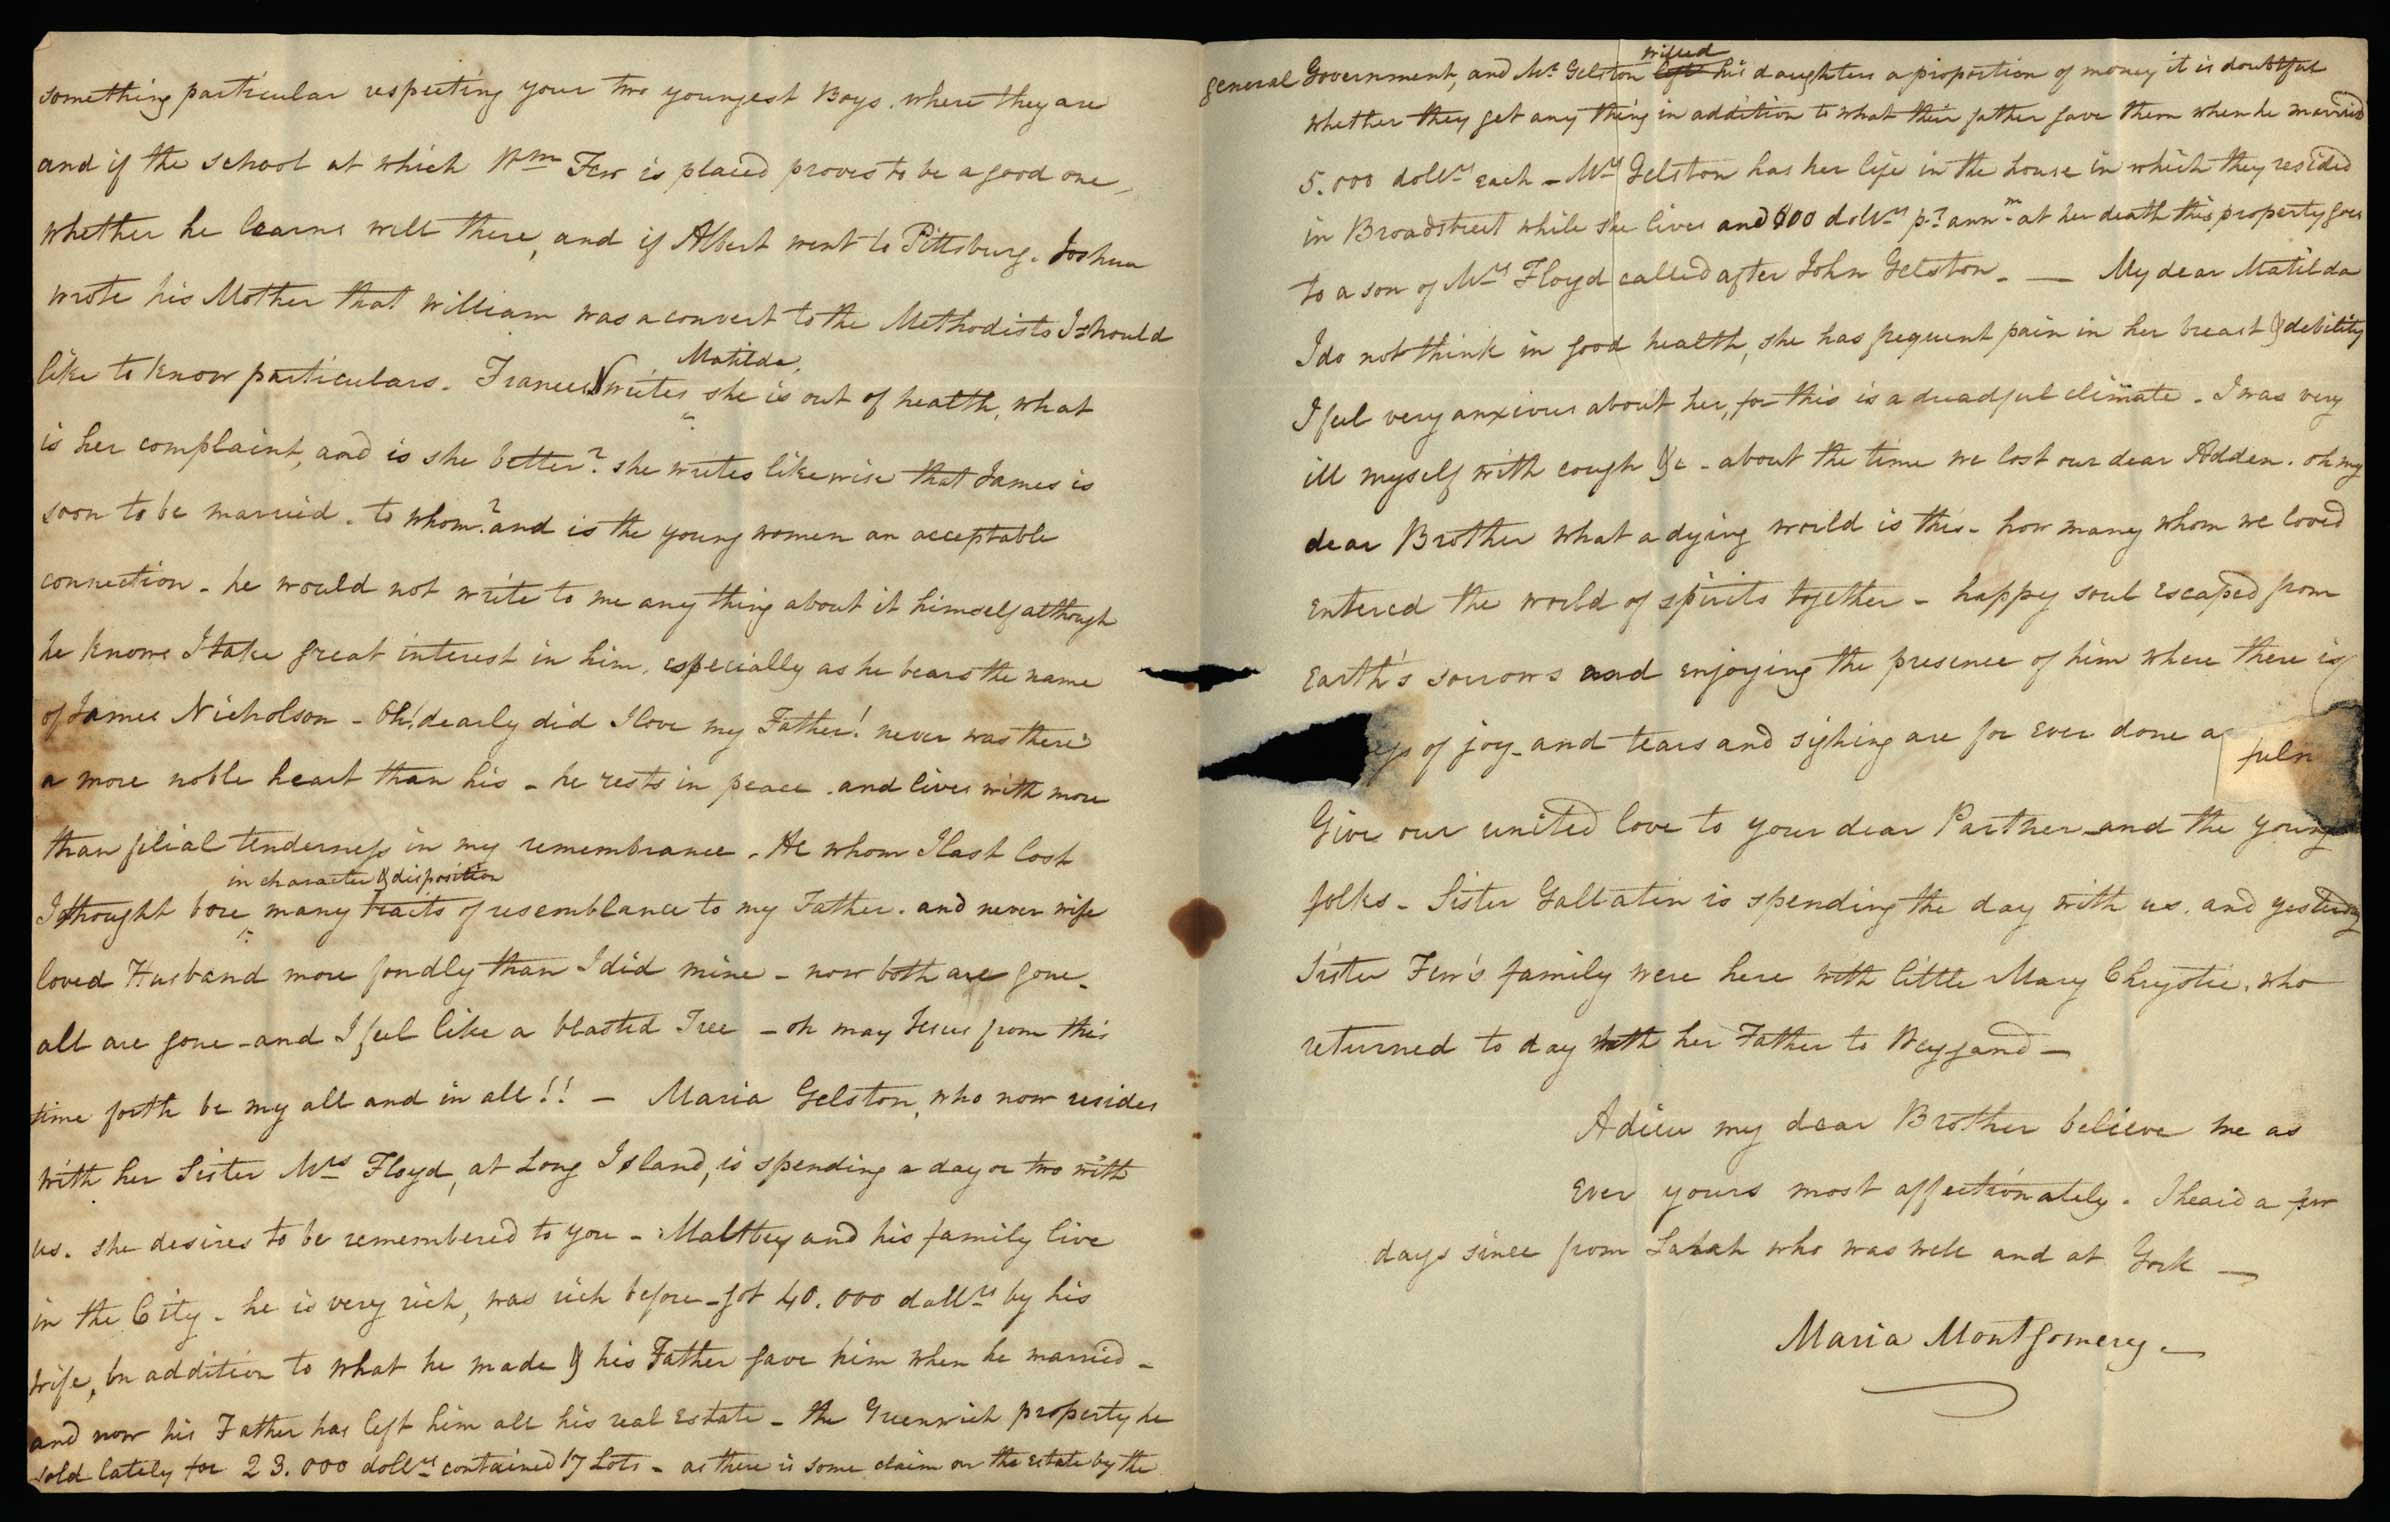 something particular respecting your two youngest Boys. where they are
and if the school at which Wm Few is placed proves to be a good one,
whether he learns well there, and if Albert went to Pittsburg. Joshua
wrote his Mother that William was a convert to the Methodists I should
Matilda,
like to know particulars. Frances writes she is out of health, what
is her complaint, and is she better? she writes likewise that James is
soon to be married. to whom? and is the young women an acceptable
connection - he would not write to me any thing about it himself although
he knows I take great interest in him, especially as he bears the name
of James Nicholson - Oh! dearly did I love my Father! never was there
a more noble heart than his - he rests in peace. and lives with more
than filial tenderness in my remembrance. He whom I last lost
in character & disposition
I thought bore many traits of resemblance to my Father. and never wife
loved Husband more fondly than I did mine - now both are gone.
all are gone - and I feel like a blasted Tree - oh may Jesus from this
time forth be my all and in all!! - Maria Gelston, who now resides
with her Sister Mrs Floyd, at Long Island, is spending a day or two with
us. she desires to be remembered to you - Maltbey and his family live
in the City - he is very rich, was rich before - got 40.000 dollrs by his
wife, in addition to what he made & his Father gave him when he married -
and now his Father has left him all his real Estate - the Greenwich property he
sold lately for 23.000 dollrs contained 17 Lots - as there is some claim on the estate by the
willed
general Government, and Mr Gelston left his daughters a proportion of money it is doubtful
whether they get any thing in addition to what their father gave them when he married
5.000 dollrs each - Mrs Gelston has her life in the house in which they resided
in Broadstreet while she lives and 800 dollrs pr annm at her death this property goes
to a son of Mrs Floyd called after John Gelston. — My dear Matilda
I do not think in good health, she has frequent pain in her breast & debility
I feel very anxious about her, for this is a dreadful climate. I was very
ill myself with cough &c - about the time we lost our dear Adden. oh my
dear Brother what a dying world is this - how many whom we loved
entered the world of spirits together - happy soul escaped from
Earth's sorrows and enjoying the presence of him where there is
fuln
of joy - and tears and sighing are for ever done a
Give our united love to your dear Partner and the young
folks - Sister Gallatin is spending the day with us. and yesterday
Sister Few's family were here with little Mary Chrystie. who
returned to day with her Father to Weygand —
Adieu my dear Brother believe me as
Ever yours most affectionately. I heard a few
days since from Sarah who was well and at York —
Maria Montgomery.